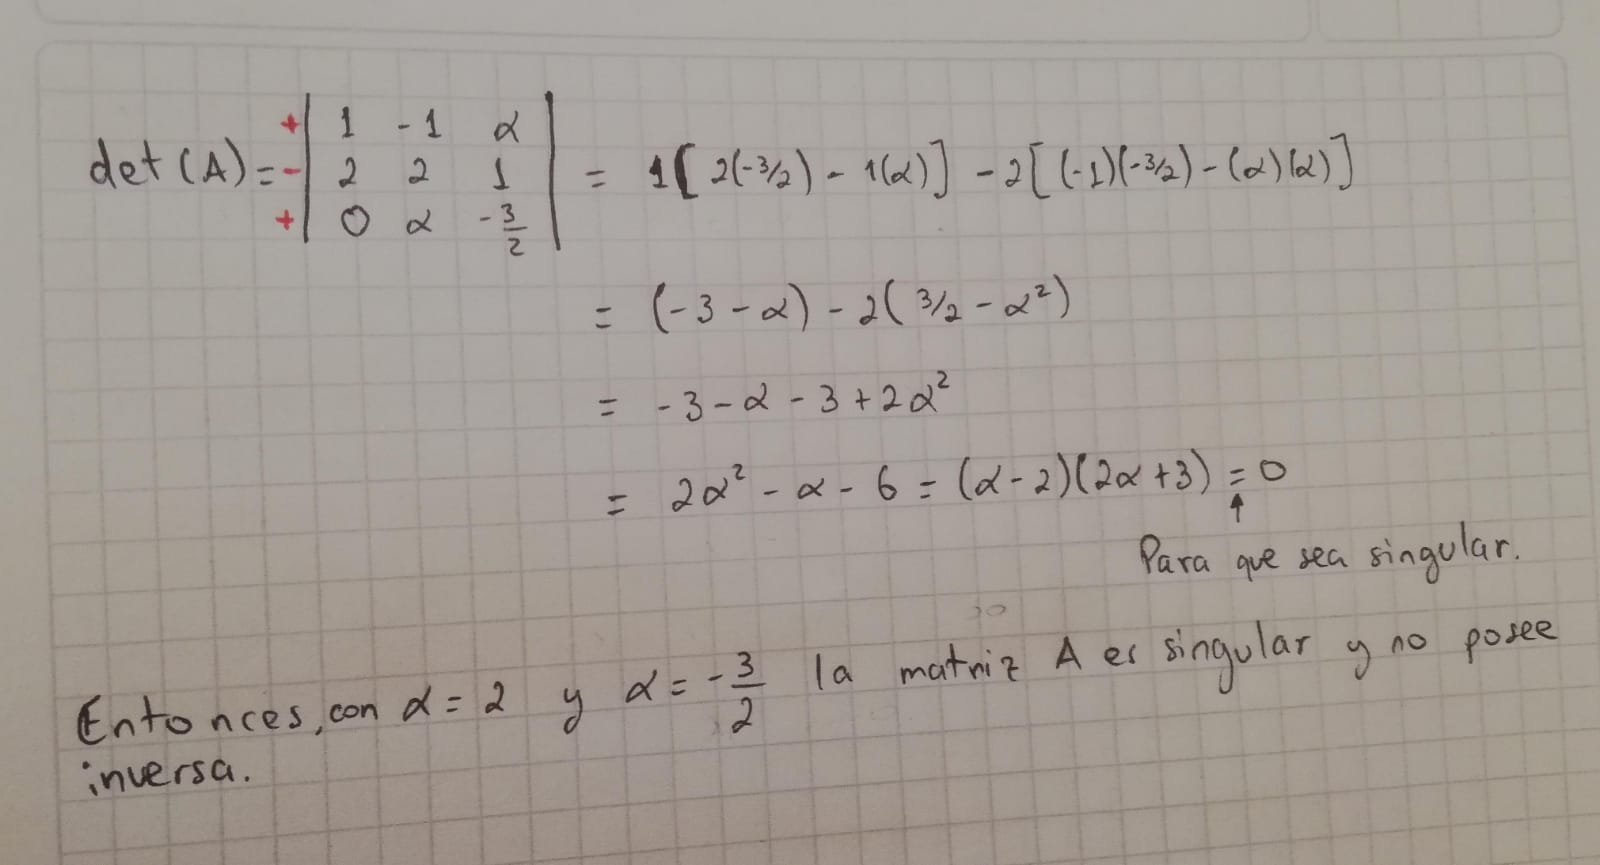 + | 1 -1 α |
det(A) = - | 2 2 1 | = 1[2(-3/2) - 1(α)] - 2[(-1)(-3/2) - (α)(α)]
+ | 0 α -3/2 |
= (-3 - α) - 2(3/2 - α²)
= -3 - α - 3 + 2α²
= 2α² - α - 6 = (α - 2)(2α + 3) = 0
↑
Para que sea singular.
Entonces, con α = 2 y α = -3/2 la matriz A es singular y no posee
inversa.